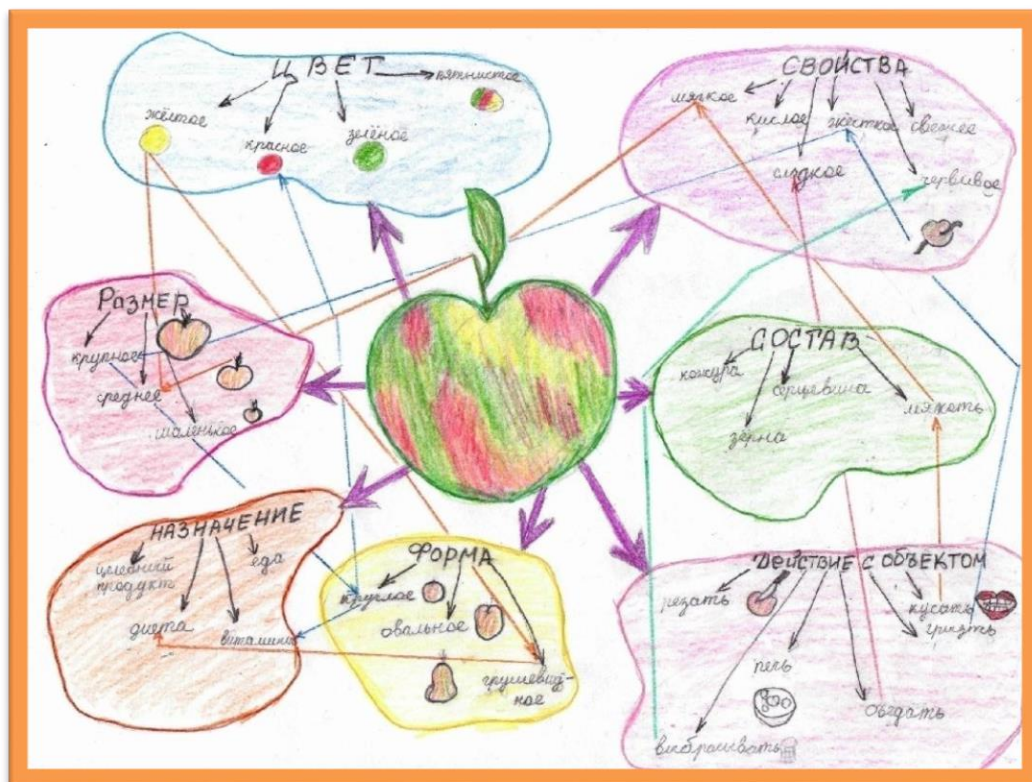 ЦВЕТ
пятнистое
жёлтое
красное
зелёное
СВОЙСТВА
мягкое
кислое
жёсткое
свежее
сладкое
червивое
РАЗМЕР
крупное
среднее
маленькое
СОСТАВ
кожура
серцевина
мякоть
зерна
НАЗНАЧЕНИЕ
целебный
продукт
еда
диета
витамины
ФОРМА
круглое
овальное
грушевид-
ное
ДЕЙСТВИЕ С ОБЪЕКТОМ
резать
кусать
грызть
печь
выбрасывать